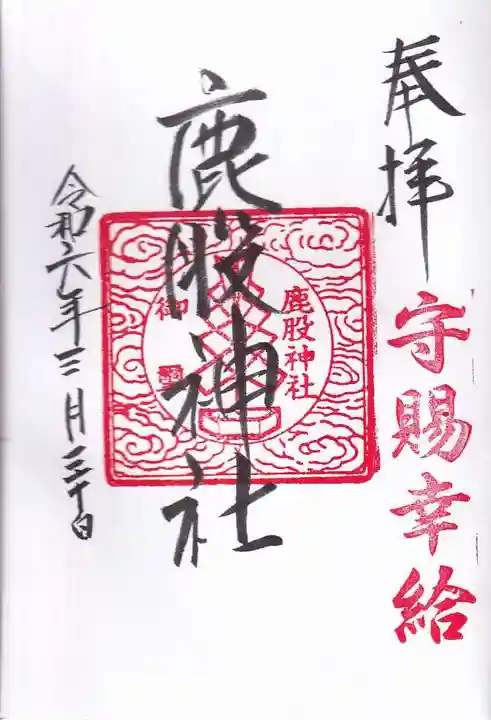 奉拝
守賜幸給
鹿股神社
鹿股神社
御
令和六年三月三十日